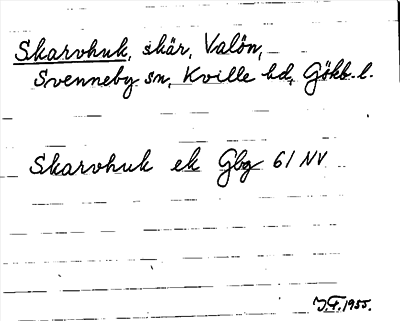 Skarvhuk, skär, Valön,
Svenneby sn, Kville hd, Gökb. l.
Skarvhuk ek Gbg 61 NV
J.F. 1955.